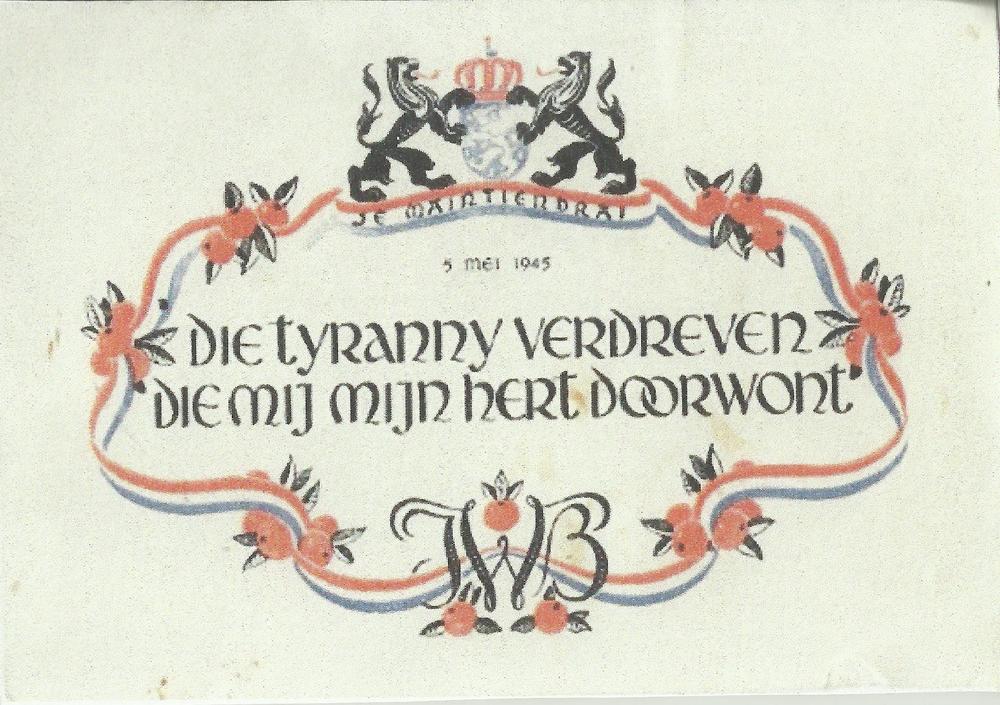 JE MAINTIENDRAI
5 MEI 1945
DIE TYRANNY VERDREVEN
DIE MIJ MIJN HERT DOORWONT
JWB